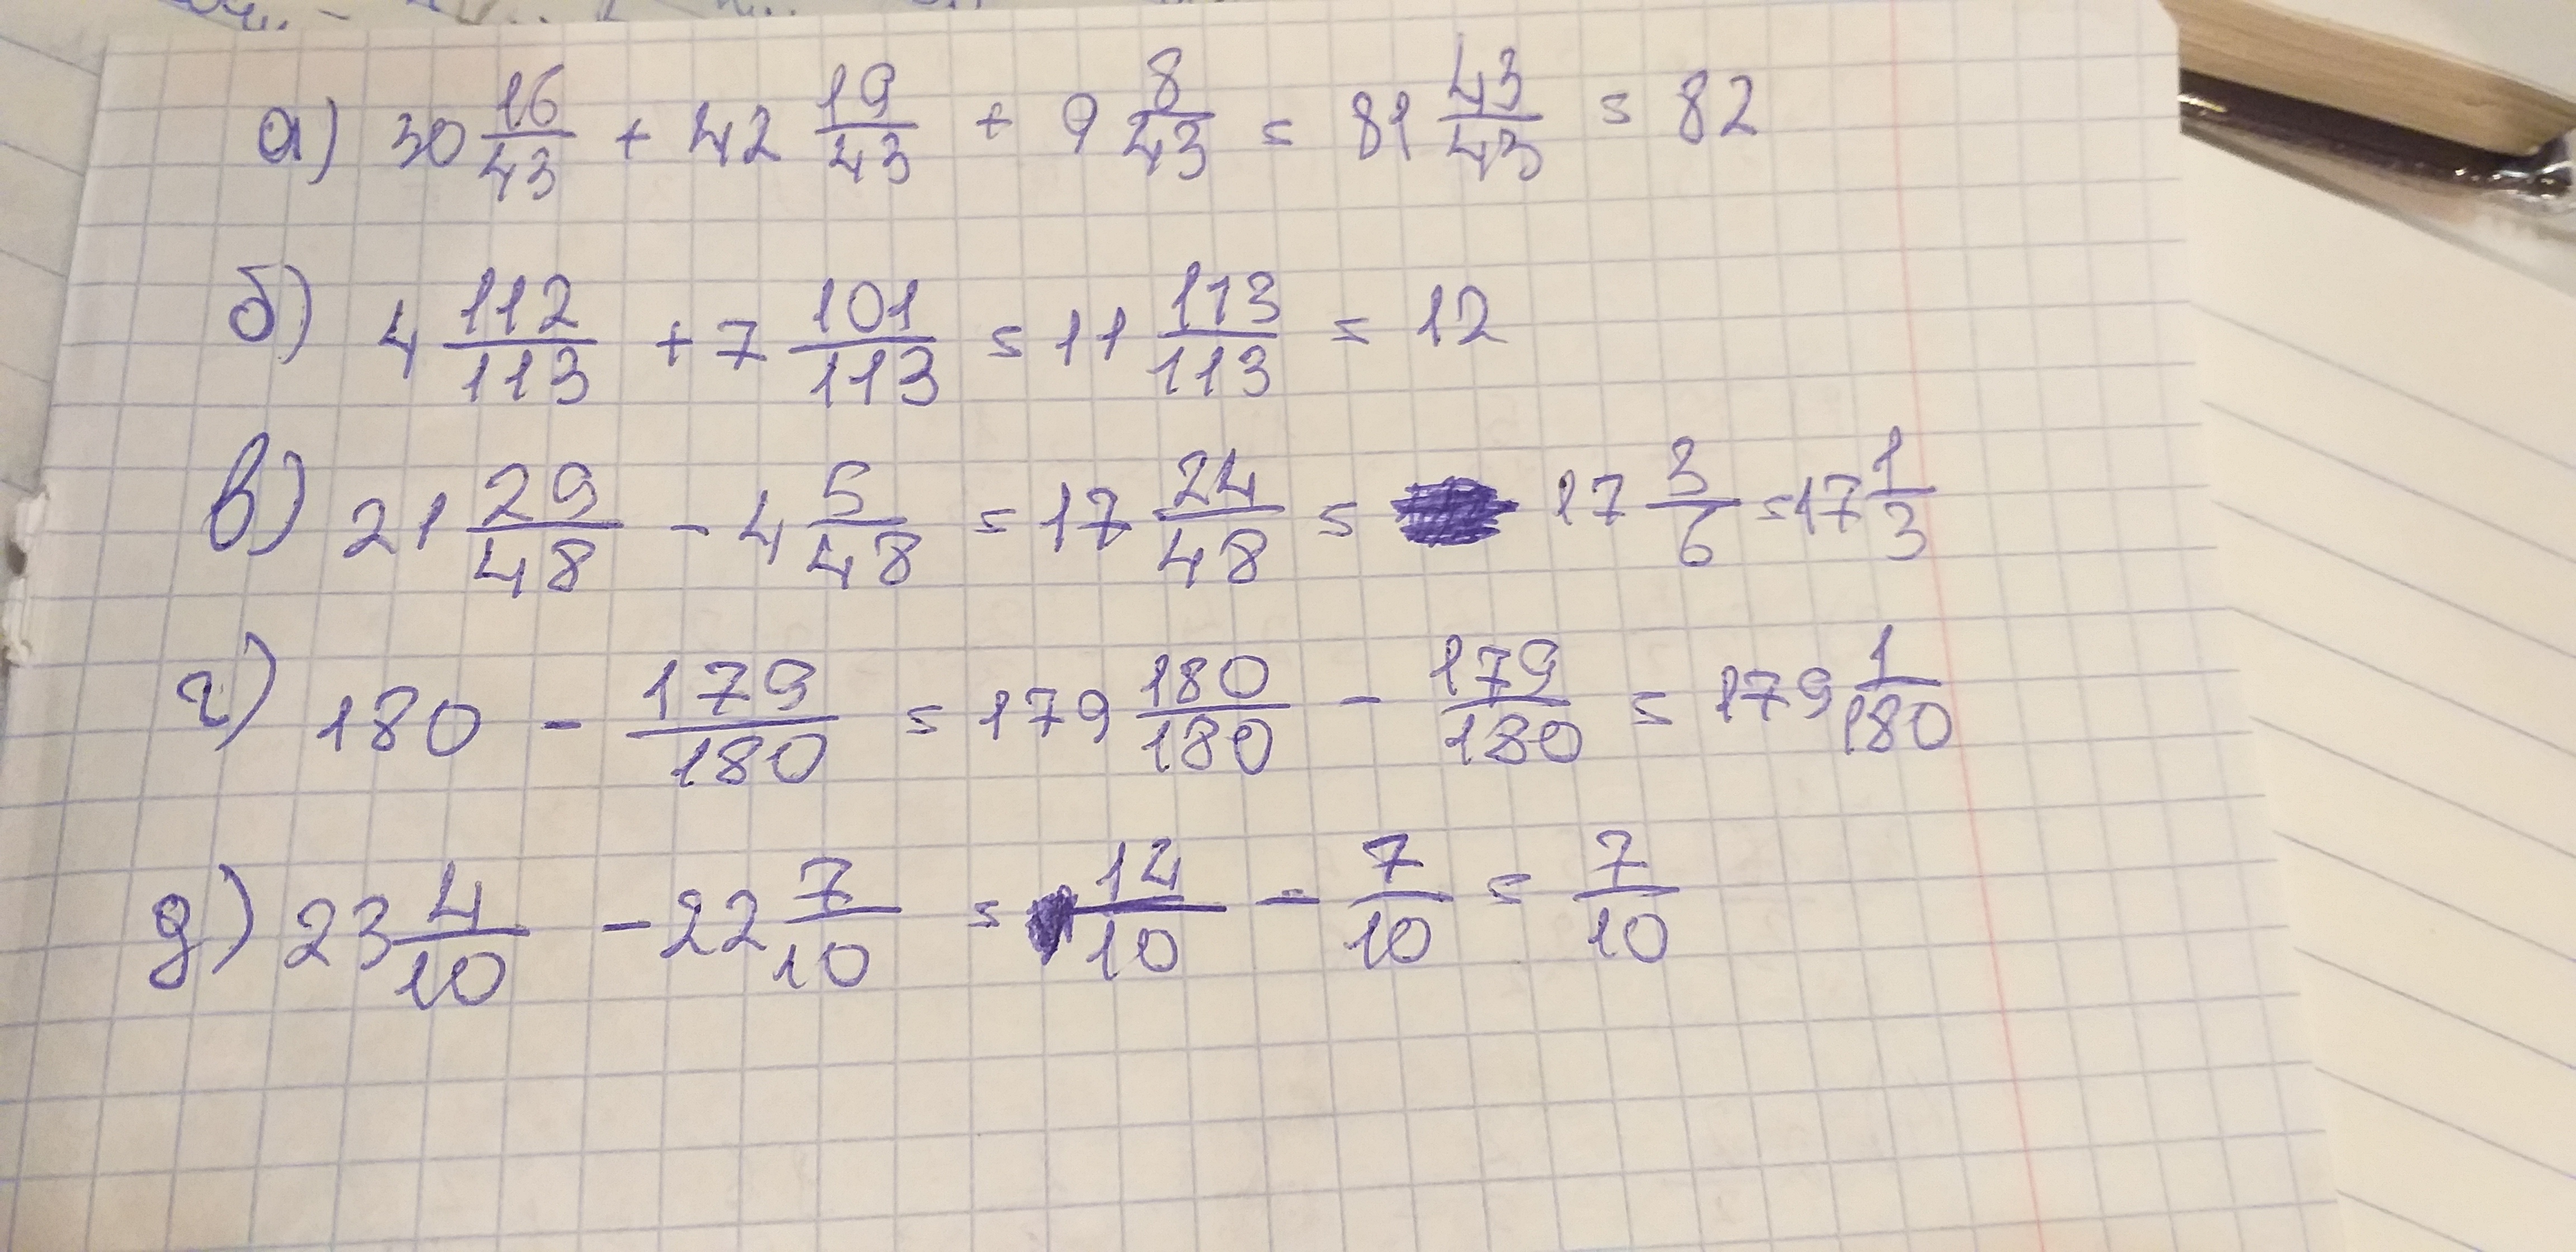 а) 30 16/43 + 42 19/43 + 9 8/43 = 81 43/43 = 82
б) 4 112/113 + 7 101/113 = 11 113/113 = 12
в) 21 29/48 - 4 5/48 = 17 24/48 = 17 3/6 = 17 1/3
г) 180 - 179/180 = 179 180/180 - 179/180 = 179 1/180
д) 23 4/10 - 22 7/10 = 14/10 - 7/10 = 7/10